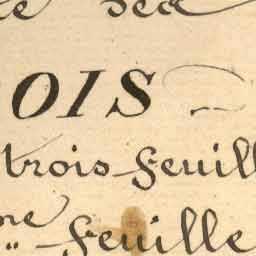 OIS
trois feuill
me
" feuille